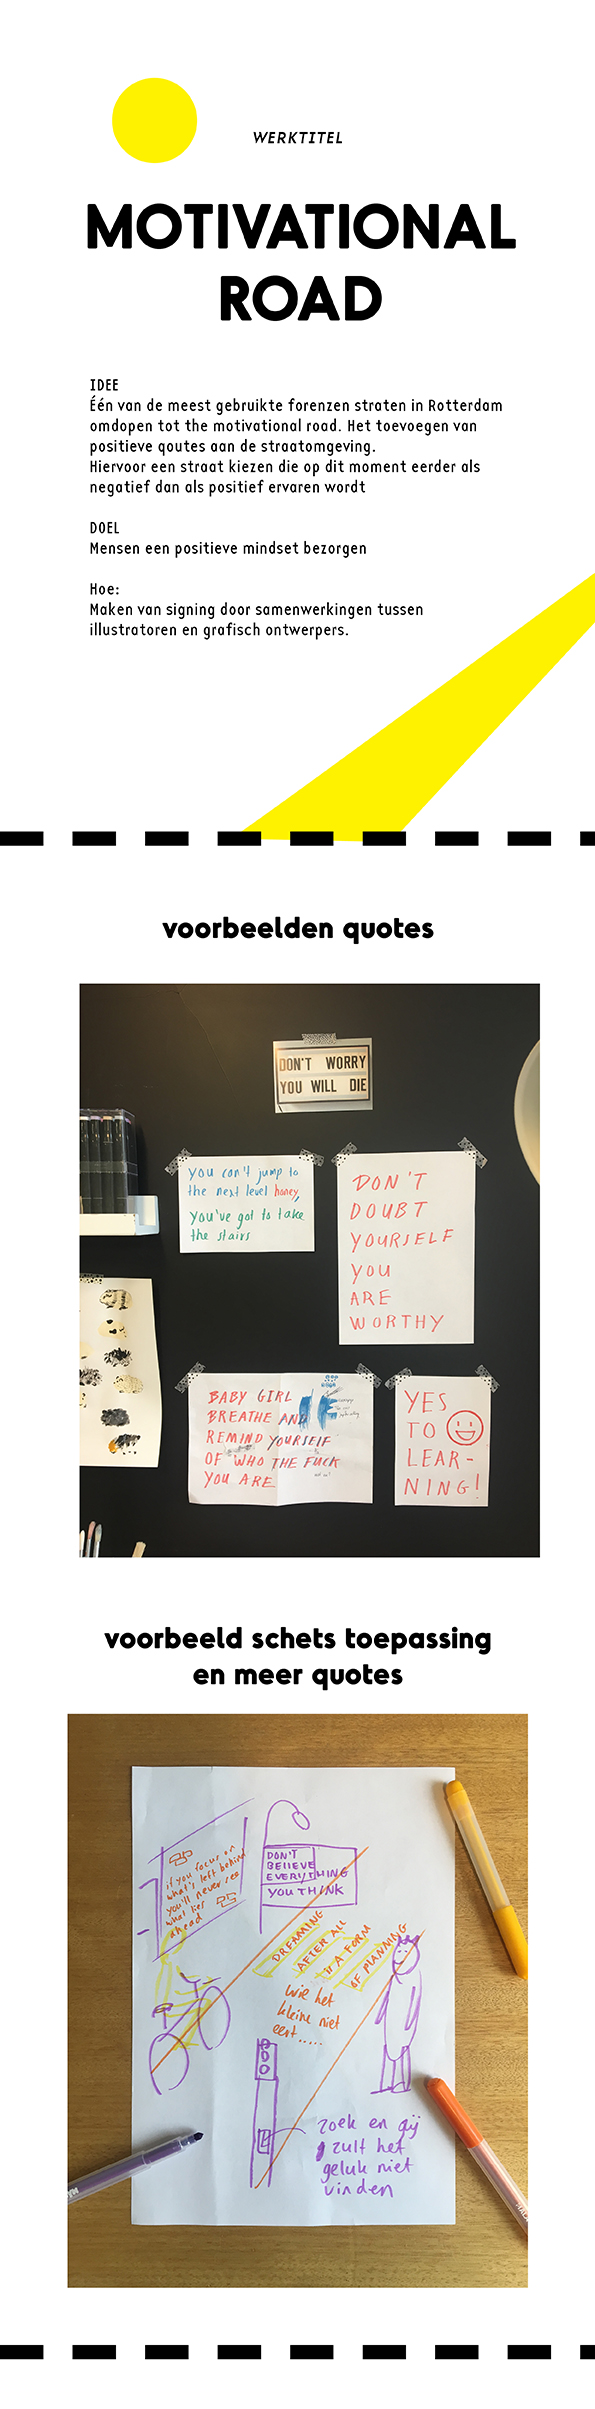 WERKTITEL
MOTIVATIONAL
ROAD
IDEE
Één van de meest gebruikte forenzen straten in Rotterdam
omdopen tot the motivational road. Het toevoegen van
positieve qoutes aan de straatomgeving.
Hiervoor een straat kiezen die op dit moment eerder als
negatief dan als positief ervaren wordt
DOEL
Mensen een positieve mindset bezorgen
Hoe:
Maken van signing door samenwerkingen tussen
illustratoren en grafisch ontwerpers.
voorbeelden quotes
DON'T WORRY
YOU WILL DIE
you can't jump to
the next level honey,
you've got to take
the stairs
DON'T
DOUBT
YOURSELF
YOU
ARE
WORTHY
BABY GIRL
BREATHE AND
REMIND YOURSELF
OF WHO THE FUCK
YOU ARE
YES
TO
LEAR-
NING!
voorbeeld schets toepassing
en meer quotes
if you focus on
what's left behind
you'll never see
what lies
ahead
DON'T
BELIEVE
EVERYTHING
YOU THINK
DREAMING
AFTER ALL
IS A FORM
OF PLANNING
wie het
kleine niet
eert.....
zoek en gij
zult het
geluk niet
vinden